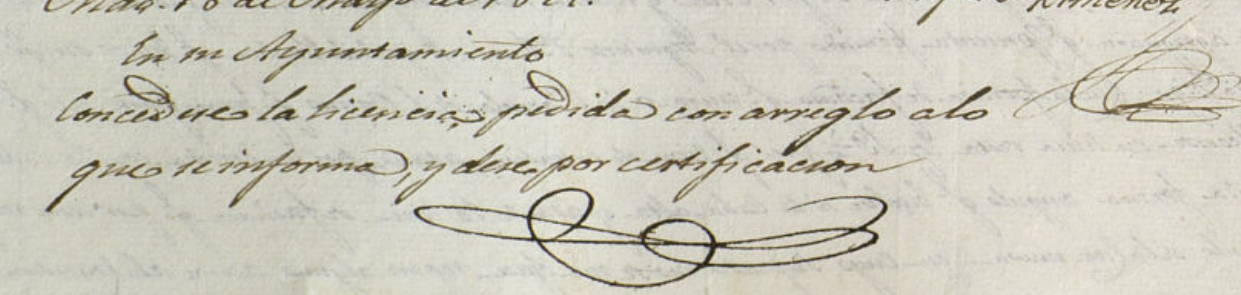 de Mayo de Ximenez
En su Ayuntamiento
Concedese la licencia, pedida con arreglo alo
que se informa, y dese por certificacion